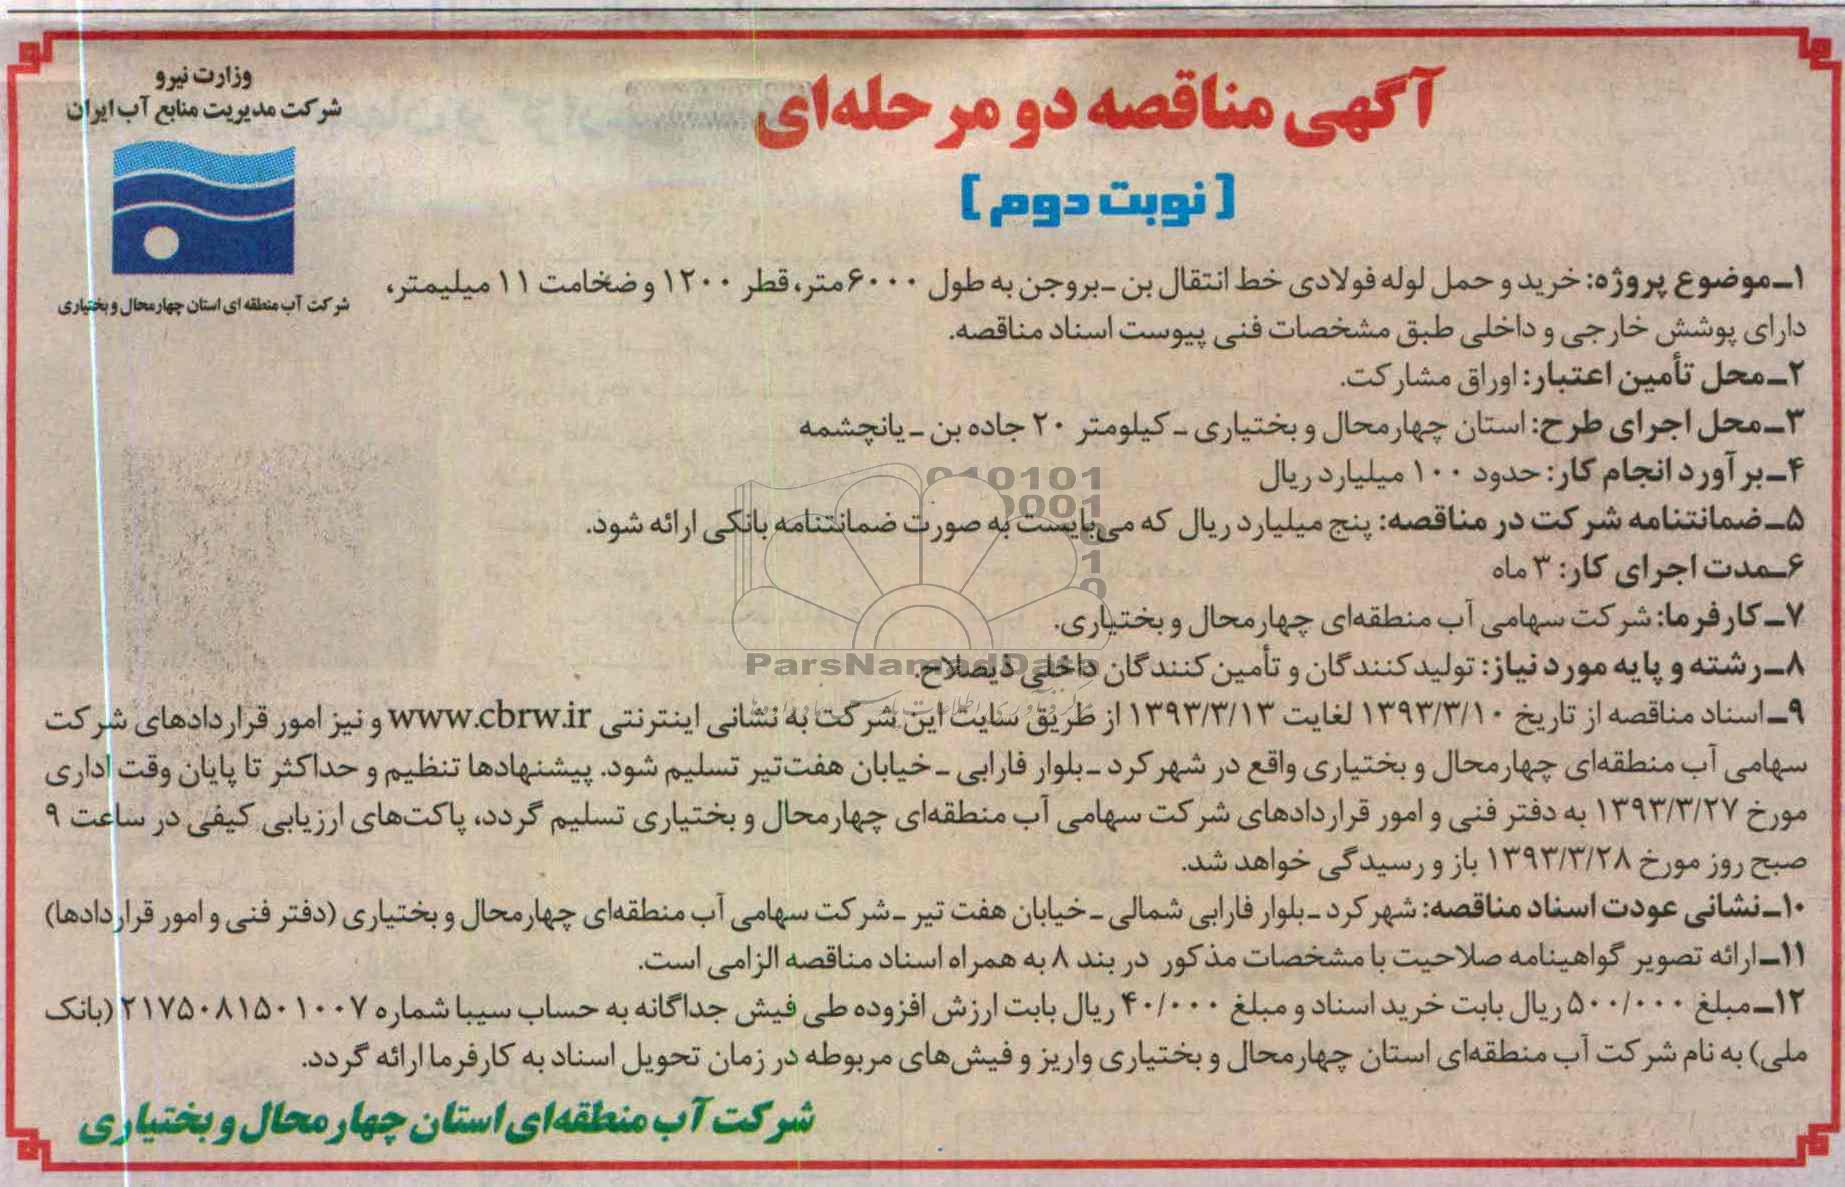 وزارت نیرو
شرکت مدیریت منابع آب ایران
شرکت آب منطقه ای استان چهارمحال و بختیاری
آگهی مناقصه دو مرحله‌ای
[نوبت دوم]
۱ـ موضوع پروژه: خرید و حمل لوله فولادی خط انتقال بن ـ بروجن به طول ۶۰۰۰ متر، قطر ۱۲۰۰ و ضخامت ۱۱ میلیمتر،
دارای پوشش خارجی و داخلی طبق مشخصات فنی پیوست اسناد مناقصه.
۲ـ محل تأمین اعتبار: اوراق مشارکت.
۳ـ محل اجرای طرح: استان چهارمحال و بختیاری ـ کیلومتر ۲۰ جاده بن ـ یانچشمه
۴ـ برآورد انجام کار: حدود ۱۰۰ میلیارد ریال
۵ـ ضمانتنامه شرکت در مناقصه: پنج میلیارد ریال که می‌بایست به صورت ضمانتنامه بانکی ارائه شود.
۶ـ مدت اجرای کار: ۳ ماه
۷ـ کارفرما: شرکت سهامی آب منطقه‌ای چهارمحال و بختیاری.
۸ـ رشته و پایه مورد نیاز: تولیدکنندگان و تأمین‌کنندگان داخلی ذیصلاح.
۹ـ اسناد مناقصه از تاریخ ۱۳۹۳/۳/۱۰ لغایت ۱۳۹۳/۳/۱۳ از طریق سایت این شرکت به نشانی اینترنتی www.cbrw.ir و نیز امور قراردادهای شرکت
سهامی آب منطقه‌ای چهارمحال و بختیاری واقع در شهرکرد ـ بلوار فارابی ـ خیابان هفت‌تیر تسلیم شود. پیشنهادها تنظیم و حداکثر تا پایان وقت اداری
مورخ ۱۳۹۳/۳/۲۷ به دفتر فنی و امور قراردادهای شرکت سهامی آب منطقه‌ای چهارمحال و بختیاری تسلیم گردد، پاکت‌های ارزیابی کیفی در ساعت ۹
صبح روز مورخ ۱۳۹۳/۳/۲۸ باز و رسیدگی خواهد شد.
۱۰ـ نشانی عودت اسناد مناقصه: شهرکرد ـ بلوار فارابی شمالی ـ خیابان هفت تیر ـ شرکت سهامی آب منطقه‌ای چهارمحال و بختیاری (دفتر فنی و امور قراردادها)
۱۱ـ ارائه تصویر گواهینامه صلاحیت با مشخصات مذکور در بند ۸ به همراه اسناد مناقصه الزامی است.
۱۲ـ مبلغ ۵۰۰/۰۰۰ ریال بابت خرید اسناد و مبلغ ۴۰/۰۰۰ ریال بابت ارزش افزوده طی فیش جداگانه به حساب سیبا شماره ۲۱۷۵۰۸۱۵۰۱۰۰۷ (بانک
ملی) به نام شرکت آب منطقه‌ای استان چهارمحال و بختیاری واریز و فیش‌های مربوطه در زمان تحویل اسناد به کارفرما ارائه گردد.
شرکت آب منطقه‌ای استان چهارمحال و بختیاری
ParsNamadData